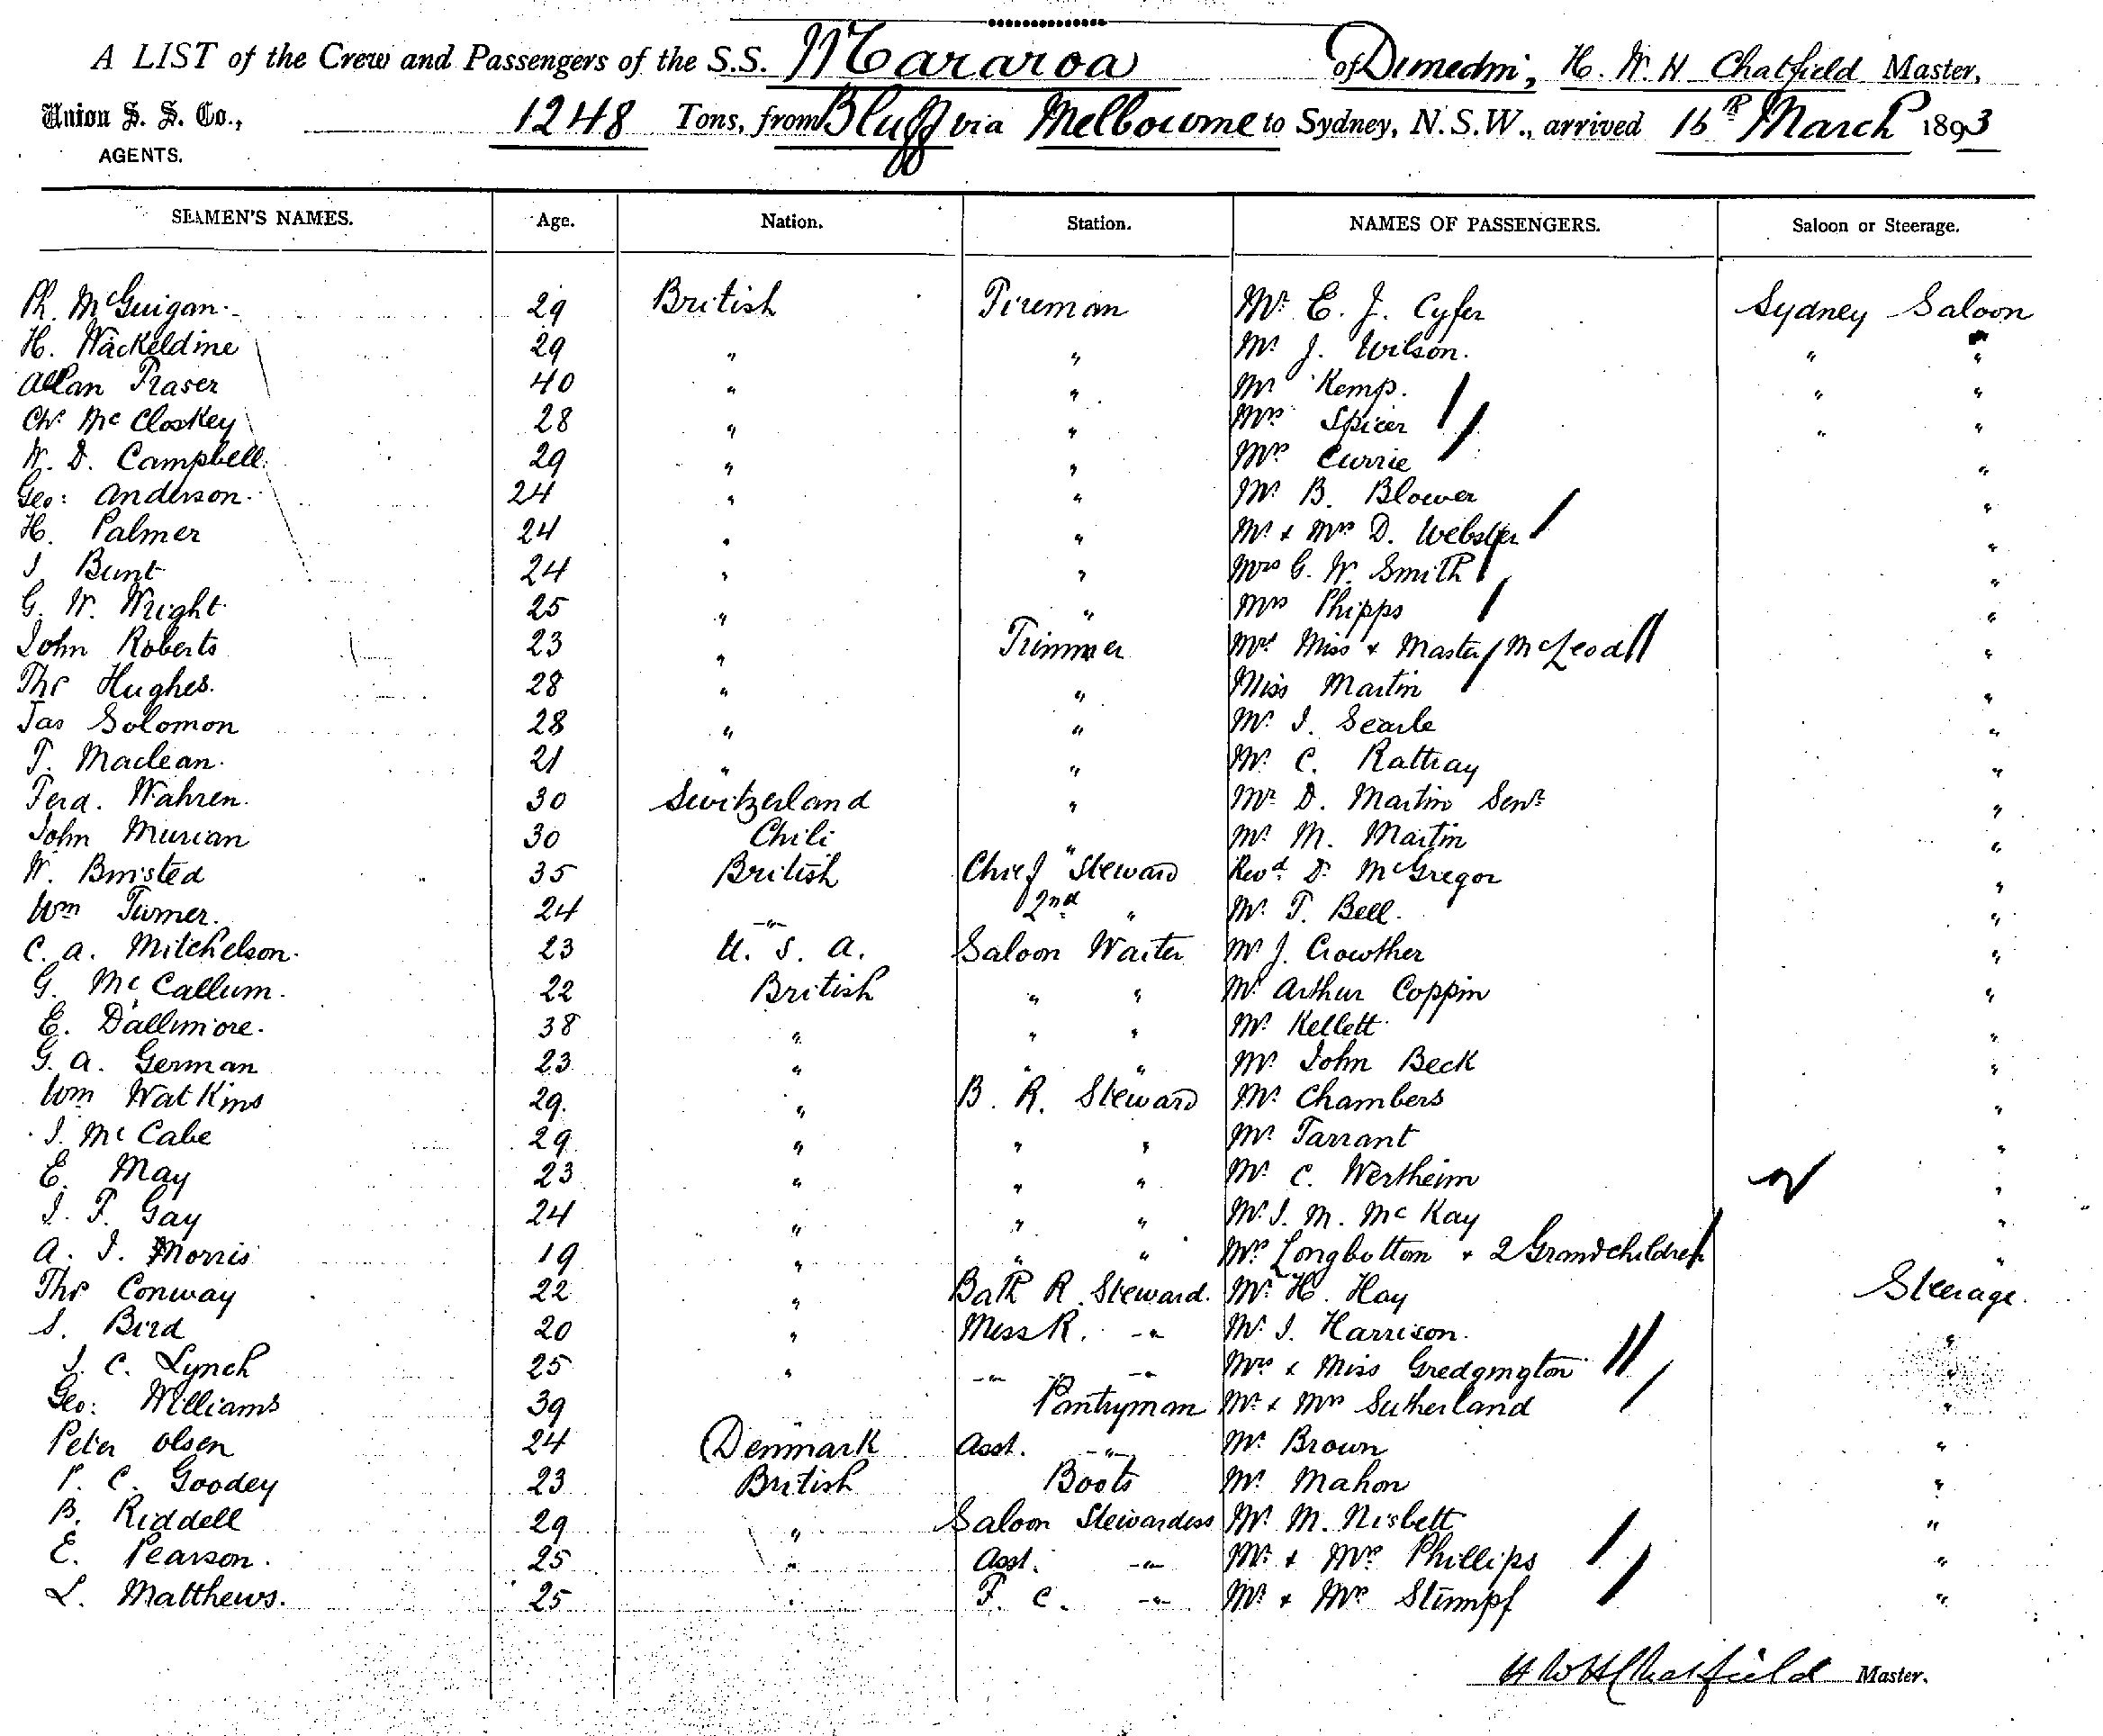 A LIST of the Crew and Passengers of the S.S. Mararoa of Dunedin, H. W. H Chatfield Master,
Union S. S. Co., 1248 Tons, from Bluff via Melbourne to Sydney, N.S.W., arrived 16th March 1893
AGENTS.
SEAMEN'S NAMES. Age. Nation. Station. NAMES OF PASSENGERS. Saloon or Steerage.
Ph. McGuigan. 29 British Fireman Mr. E. J. Cyfer Sydney Saloon
H. Wackeldine 29 " " Mr J. Wilson. " "
Allan Fraser 40 " " Mr Kemp. " "
Chr McCloskey 28 " " Mrs Spicer " "
W. D. Campbell 29 " " Mrs Currie "
Geo: Anderson 24 " " Mr B. Blower "
H. Palmer 24 " " Mr & Mrs D. Webster "
J Bunt 24 " " Mrs G. W. Smith "
G. W. Wright 25 " " Mrs Phipps "
John Roberts 23 " Trimmer Mrs Miss & Master McLeod "
Thos Hughes. 28 " " Miss Martin "
Jas Solomon 28 " " Mr. J. Searle "
T. Maclean. 21 " " Mr. C. Rattray "
Ferd. Wahren. 30 Switzerland " Mr D. Martin Senr "
John Murian 30 Chili " Mr. M. Martin "
W. Binsted 35 British Chief Steward Revd. D. McGregor "
Wm Turner. 24 -"- 2nd " Mr. T. Bell. "
C. A. Mitchelson. 23 U. S. A. Saloon Waiter Mr J. Crowther "
G. McCallum. 22 British " " Mr Arthur Coppin "
E. Dallimore. 38 " " " Mr. Kellett "
G. A. German 23 " " " Mr. John Beck "
Wm Watkins 29. " B. R. Steward Mr. Chambers "
J. McCabe 29 " " " Mr. Tarrant "
E. May 23 " " " Mr. C. Wertheim "
J. F. Gay 24 " " " Mr. J. M. McKay "
A. J. Morris 19 " " " Mrs Longbottom & 2 Grandchildren "
Thos Conway 22 " Bath R. Steward. Mr. H. Hay Steerage.
S. Bird 20 " Mess R. -"- Mr. J. Harrison. "
J. C. Lynch 25 " -"- -"- -"- Mrs & Miss Gredgington "
Geo: Williams 39 " Pantryman Mr. & Mrs Sutherland "
Peter Olsen 24 Denmark Asst. -"- Mr. Brown "
P. C. Goodey 23 British Boots Mr. Mahon "
B. Riddell 29 " Saloon Stewardess Mr. M. Nisbett "
E. Pearson. 25 " Asst. -"- Mr. & Mrs Phillips "
L. Matthews. 25 " F. C. -"- Mr. & Mrs Stumpf "
H W H Chatfield Master.